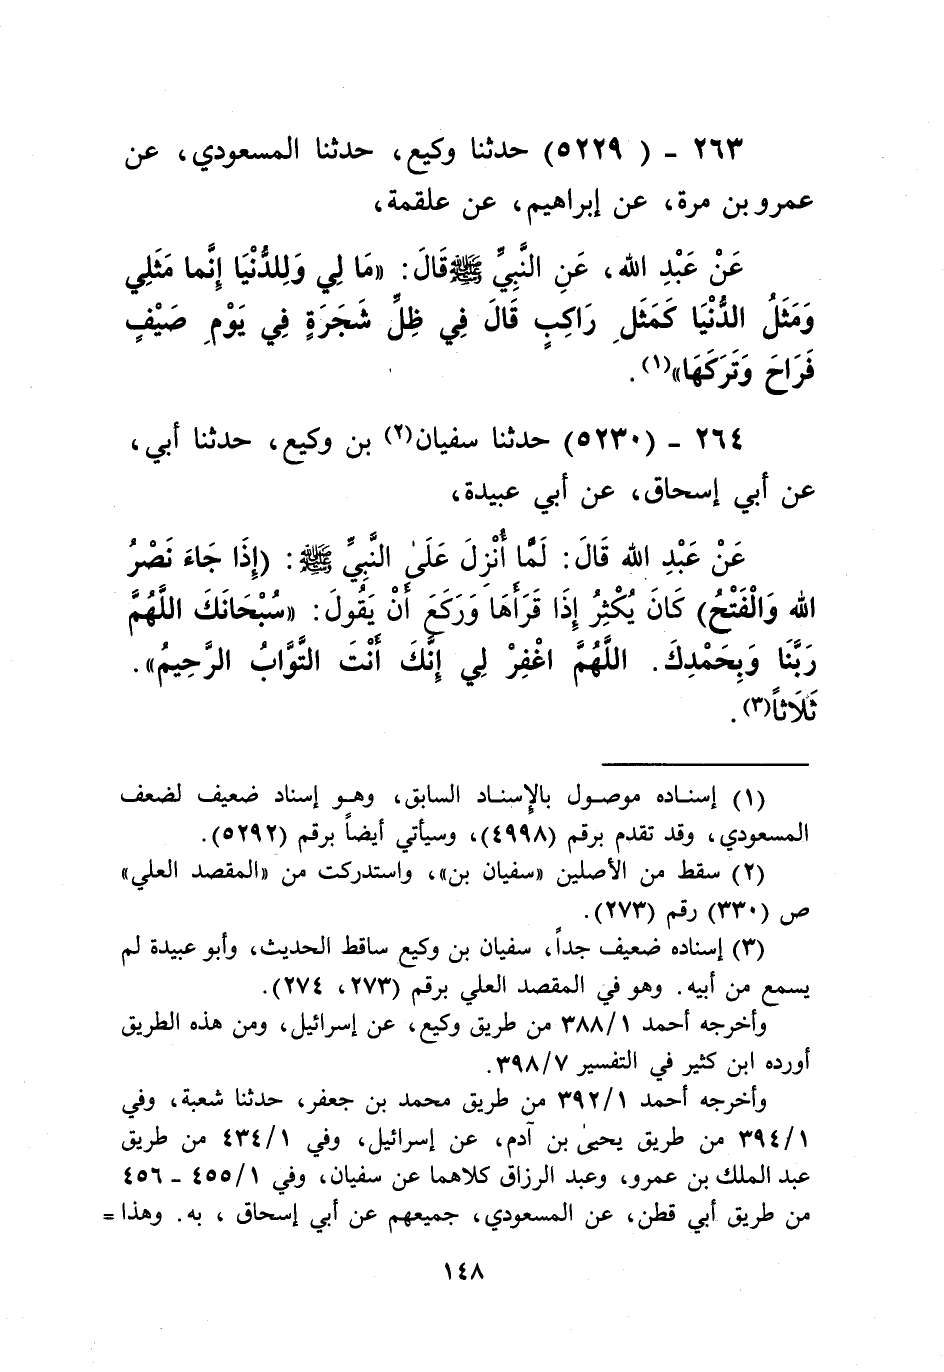 ٢٦٣ - ( ٥٢٢٩) حدثنا وكيع، حدثنا المسعودي، عن
عمرو بن مرة، عن إبراهيم، عن علقمة،
عَنْ عَبْدِ الله، عَنِ النَّبِيِّ ﷺ قَالَ: «مَا لِي وَلِلدُّنْيَا إِنَّما مَثَلِي
وَمَثَلُ الدُّنْيَا كَمَثَلِ رَاكِبٍ قَالَ فِي ظِلِّ شَجَرَةٍ فِي يَوْمِ صَيْفٍ
فَرَاحَ وَتَرَكَهَا»(١).
٢٦٤ - (٥٢٣٠) حدثنا سفيان(٢) بن وكيع، حدثنا أبي،
عن أبي إسحاق، عن أبي عبيدة،
عَنْ عَبْدِ الله قَالَ: لَمَّا أُنْزِلَ عَلَىٰ النَّبِيِّ ﷺ: (إِذَا جَاءَ نَصْرُ
الله وَالْفَتْحُ) كَانَ يُكْثِرُ إِذَا قَرَأَهَا وَرَكَعَ أَنْ يَقُولَ: «سُبْحَانَكَ اللَّهُمَّ
رَبَّنَا وَبِحَمْدِكَ. اللَّهُمَّ اغْفِرْ لِي إِنَّكَ أَنْتَ التَّوَّابُ الرَّحِيمُ».
ثَلَاثاً(٣).
(١) إسناده موصول بالإسناد السابق، وهو إسناد ضعيف لضعف
المسعودي، وقد تقدم برقم (٤٩٩٨)، وسيأتي أيضاً برقم (٥٢٩٢).
(٢) سقط من الأصلين «سفيان بن»، واستدركت من «المقصد العلي»
ص (٣٣٠) رقم (٢٧٣).
(٣) إسناده ضعيف جداً، سفيان بن وكيع ساقط الحديث، وأبو عبيدة لم
يسمع من أبيه. وهو في المقصد العلي برقم (٢٧٣، ٢٧٤).
وأخرجه أحمد ٣٨٨/١ من طريق وكيع، عن إسرائيل، ومن هذه الطريق
أورده ابن كثير في التفسير ٣٩٨/٧.
وأخرجه أحمد ٣٩٢/١ من طريق محمد بن جعفر، حدثنا شعبة، وفي
٣٩٤/١ من طريق يحيىٰ بن آدم، عن إسرائيل، وفي ٤٣٤/١ من طريق
عبد الملك بن عمرو، وعبد الرزاق كلاهما عن سفيان، وفي ٤٥٥/١ - ٤٥٦
من طريق أبي قطن، عن المسعودي، جميعهم عن أبي إسحاق ، به. وهذا =
١٤٨